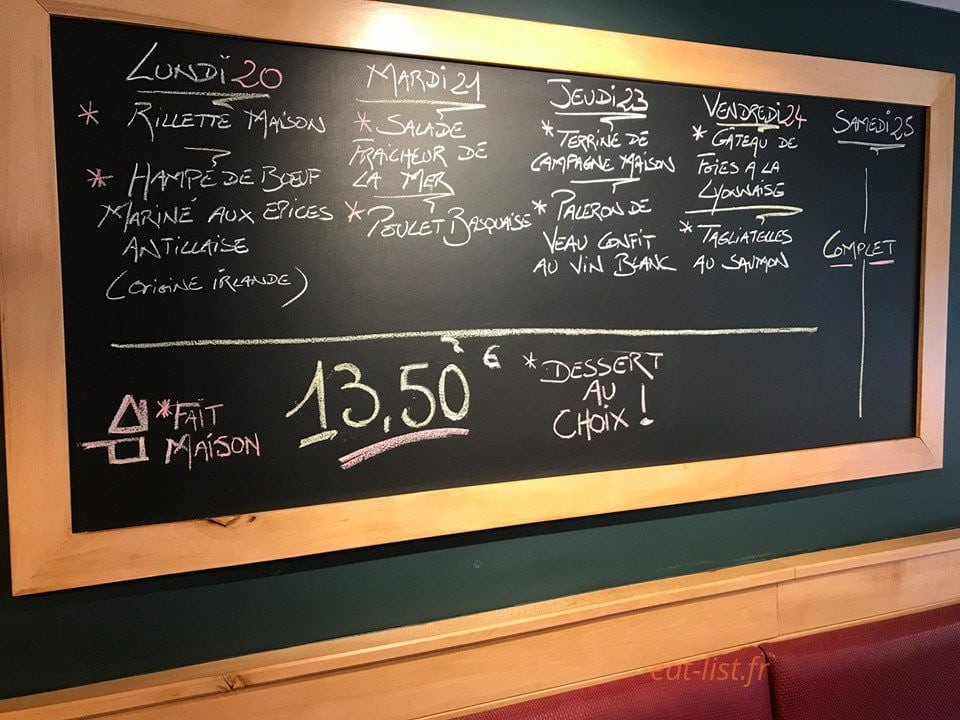 LUNDI 20
* RILLETTE MAISON
* HAMPE DE BŒUF
MARINÉ AUX EPICES
ANTILLAISE
(ORIGINE IRLANDE)
MARDI 21
* SALADE
FRAICHEUR DE
LA MER
* POULET BASQUAISE
JEUDI 23
* TERRINE DE
CAMPAGNE MAISON
* PALERON DE
VEAU CONFIT
AU VIN BLANC
VENDREDI 24
* GÂTEAU DE
FOIES A LA
LYONNAISE
* TAGLIATELLES
AU SAUMON
SAMEDI 25
COMPLET
* FAIT
MAISON
13,50 €
* DESSERT
AU
CHOIX !
eat-list.fr